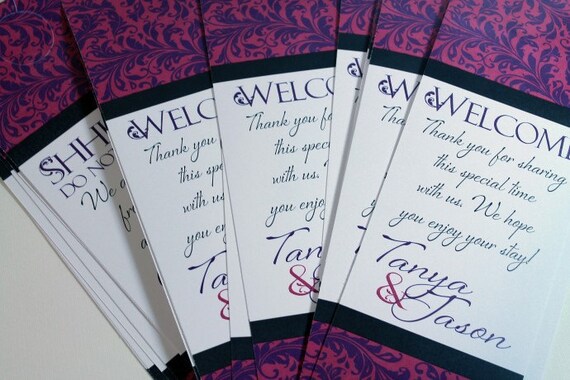 SHH
DO NO
We
WELCOM
Thank you fo
this spec
with us.
you enjoy
Tan
&
WELCOM
Thank you f
this special
with us.
you enjoy
Tany
&
WELCOME
Thank you for sharing
this special time
with us. We hope
you enjoy your stay!
Tanya
&
Jason